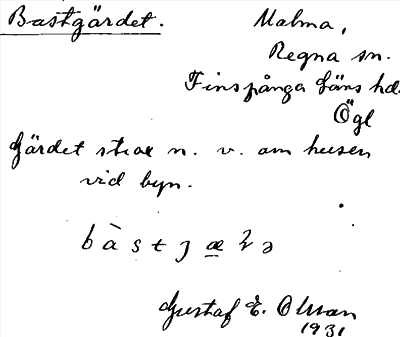 Bastgärdet.
Malma,
Regna sn.
Finspånga läns hd.
Ögl
Gärdet strax n. v. om husen
vid byn.
Gustaf E. Olsson
1931